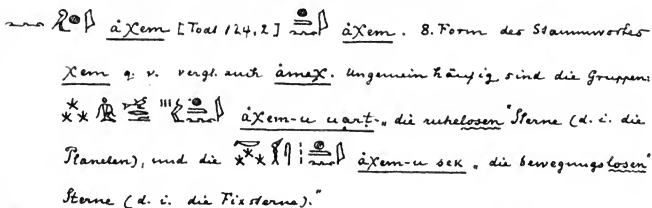 áχem [Todt 124,2] áχem. 8. Form des Stammwortes
χem q. v. vergl. auch ámeχ. Ungemein häufig sind die Gruppen:
áχem-u uart „die ruhelosen" Sterne (d. i. die
Planeten), und die áχem-u sek „die bewegungslosen"
Sterne (d. i. die Fixsterne)."